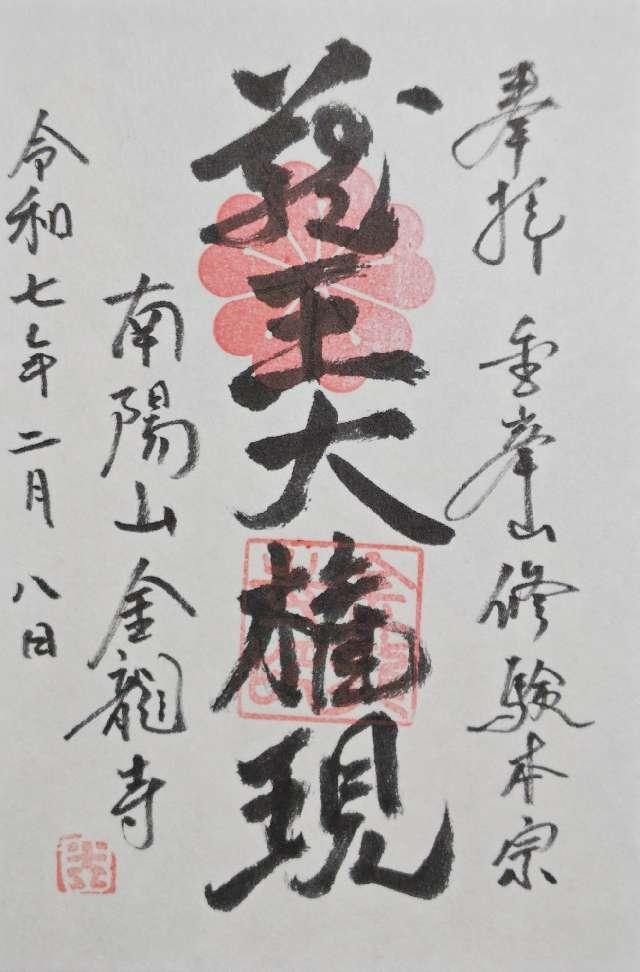 奉拝 金峯山修験本宗
蔵王大権現
南陽山金龍寺
令和七年二月八日